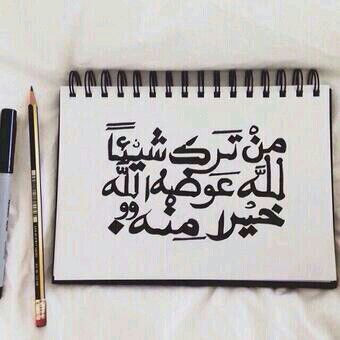 مِنْ تَرَكَ شيئاً
للَّه عَوضهُ اللَّه
خيرا مِنْه